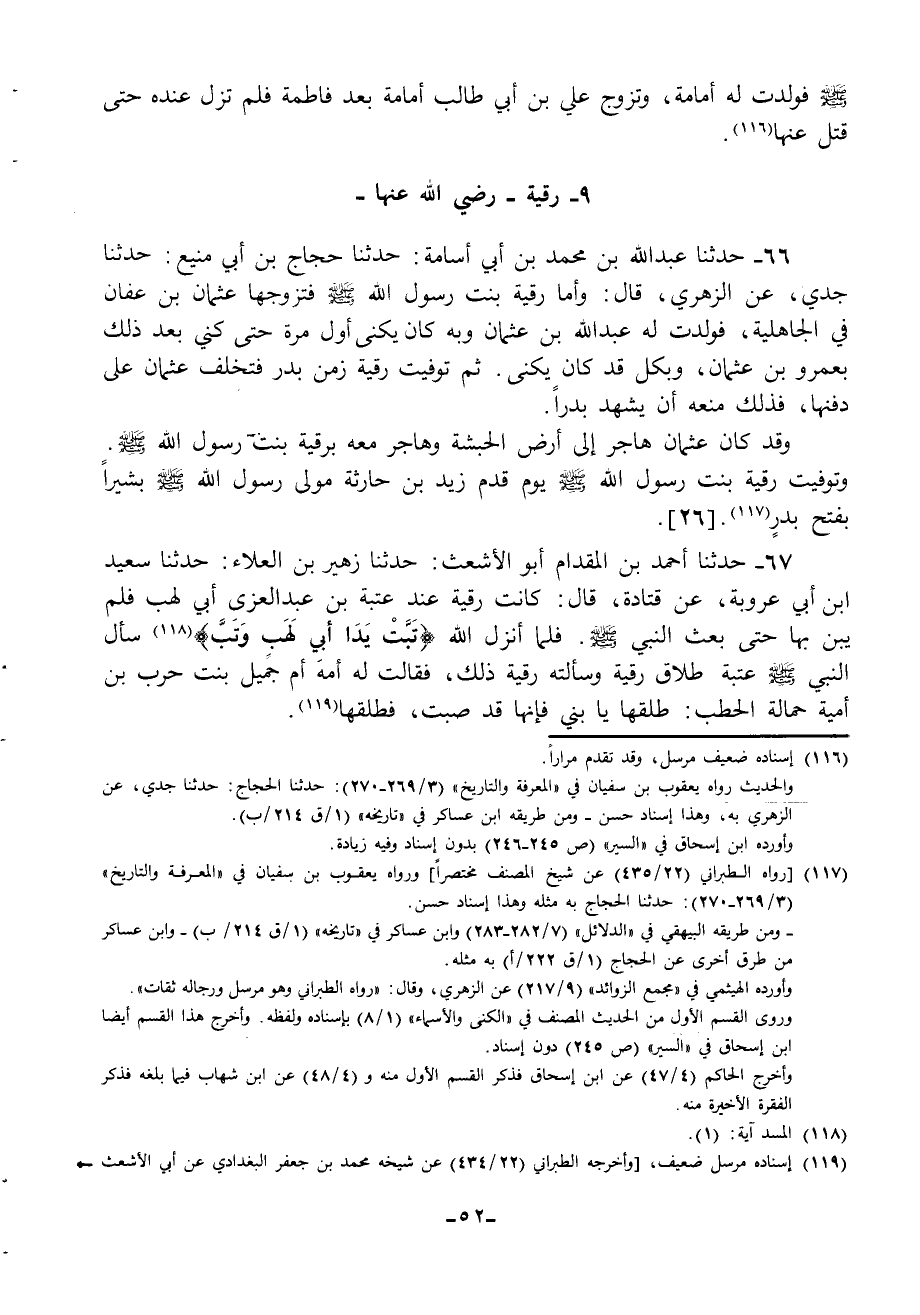 ﷺ فولدت له أمامة، وتزوج علي بن أبي طالب أمامة بعد فاطمة فلم تزل عنده حتى
قتل عنها(١١٦).
٩ـ رقية ـ رضي الله عنها ـ
٦٦ـ حدثنا عبدالله بن محمد بن أبي أسامة: حدثنا حجاج بن أبي منيع: حدثنا
جدي، عن الزهري، قال: وأما رقية بنت رسول الله ﷺ فتزوجها عثمان بن عفان
في الجاهلية، فولدت له عبدالله بن عثمان وبه كان يكنى أول مرة حتى كني بعد ذلك
بعمرو بن عثمان، وبكل قد كان يكنى. ثم توفيت رقية زمن بدر فتخلف عثمان على
دفنها، فذلك منعه أن يشهد بدراً.
وقد كان عثمان هاجر إلى أرض الحبشة وهاجر معه برقية بنت رسول الله ﷺ.
وتوفيت رقية بنت رسول الله ﷺ يوم قدم زيد بن حارثة مولى رسول الله ﷺ بشيراً
بفتح بدرٍ(١١٧). [٢٦].
٦٧ـ حدثنا أحمد بن المقدام أبو الأشعث: حدثنا زهير بن العلاء: حدثنا سعيد
ابن أبي عروبة، عن قتادة، قال: كانت رقية عند عتبة بن عبدالعزى أبي لهب فلم
يبن بها حتى بعث النبي ﷺ. فلما أنزل الله ﴿تَبَّتْ يَدَا أبي لَهَبٍ وَتَبَّ﴾(١١٨) سأل
النبي ﷺ عتبة طلاق رقية وسألته رقية ذلك، فقالت له أمه أم جميل بنت حرب بن
أمية حمالة الحطب: طلقها يا بني فإنها قد صبت، فطلقها(١١٩).
(١١٦) إسناده ضعيف مرسل، وقد تقدم مراراً.
والحديث رواه يعقوب بن سفيان في «المعرفة والتاريخ» (٣/٢٦٩ـ٢٧٠): حدثنا الحجاج: حدثنا جدي، عن
الزهري به، وهذا إسناد حسن ـ ومن طريقه ابن عساكر في «تاريخه» (١/ق ٢١٤/ب).
وأورده ابن إسحاق في «السير» (ص ٢٤٥ـ٢٤٦) بدون إسناد وفيه زيادة.
(١١٧) [رواه الطبراني (٢٢/٤٣٥) عن شيخ المصنف مختصراً] ورواه يعقوب بن سفيان في «المعرفة والتاريخ»
(٣/٢٦٩ـ٢٧٠): حدثنا الحجاج به مثله وهذا إسناد حسن.
ـ ومن طريقه البيهقي في «الدلائل» (٧/٢٨٢ـ٢٨٣) وابن عساكر في «تاريخه» (١/ق ٢١٤/ ب) ـ وابن عساكر
من طرق أخرى عن الحجاج (١/ق ٢٢٢/أ) به مثله.
وأورده الهيثمي في «مجمع الزوائد» (٩/٢١٧) عن الزهري، وقال: «رواه الطبراني وهو مرسل ورجاله ثقات».
وروى القسم الأول من الحديث المصنف في «الكنى والأسماء» (١/٨) بإسناده ولفظه. وأخرج هذا القسم أيضا
ابن إسحاق في «السير» (ص ٢٤٥) دون إسناد.
وأخرج الحاكم (٤/٤٧) عن ابن إسحاق فذكر القسم الأول منه و (٤/٤٨) عن ابن شهاب فيما بلغه فذكر
الفقرة الأخيرة منه.
(١١٨) المسد آية: (١).
(١١٩) إسناده مرسل ضعيف، [وأخرجه الطبراني (٢٢/٤٣٤) عن شيخه محمد بن جعفر البغدادي عن أبي الأشعث ←
ـ٥٢ـ